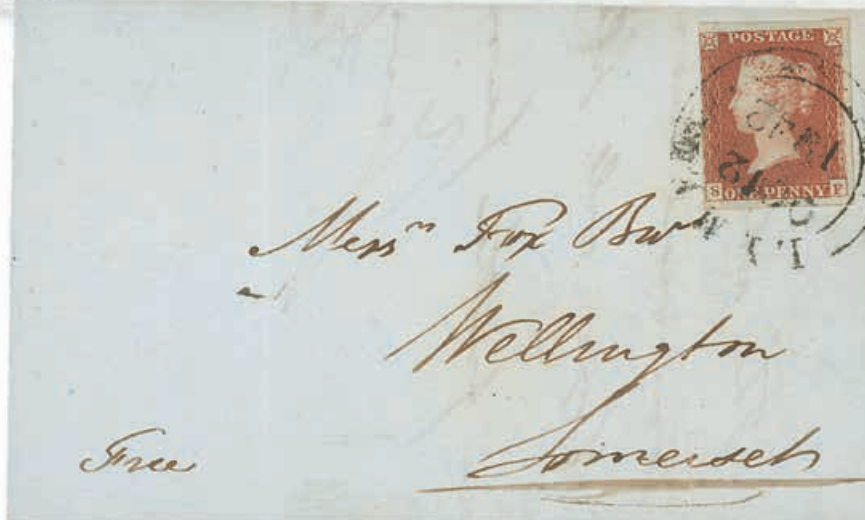 POSTAGE
S ONE PENNY F
Messrs Fox Bros
Wellington
Somerset
Free